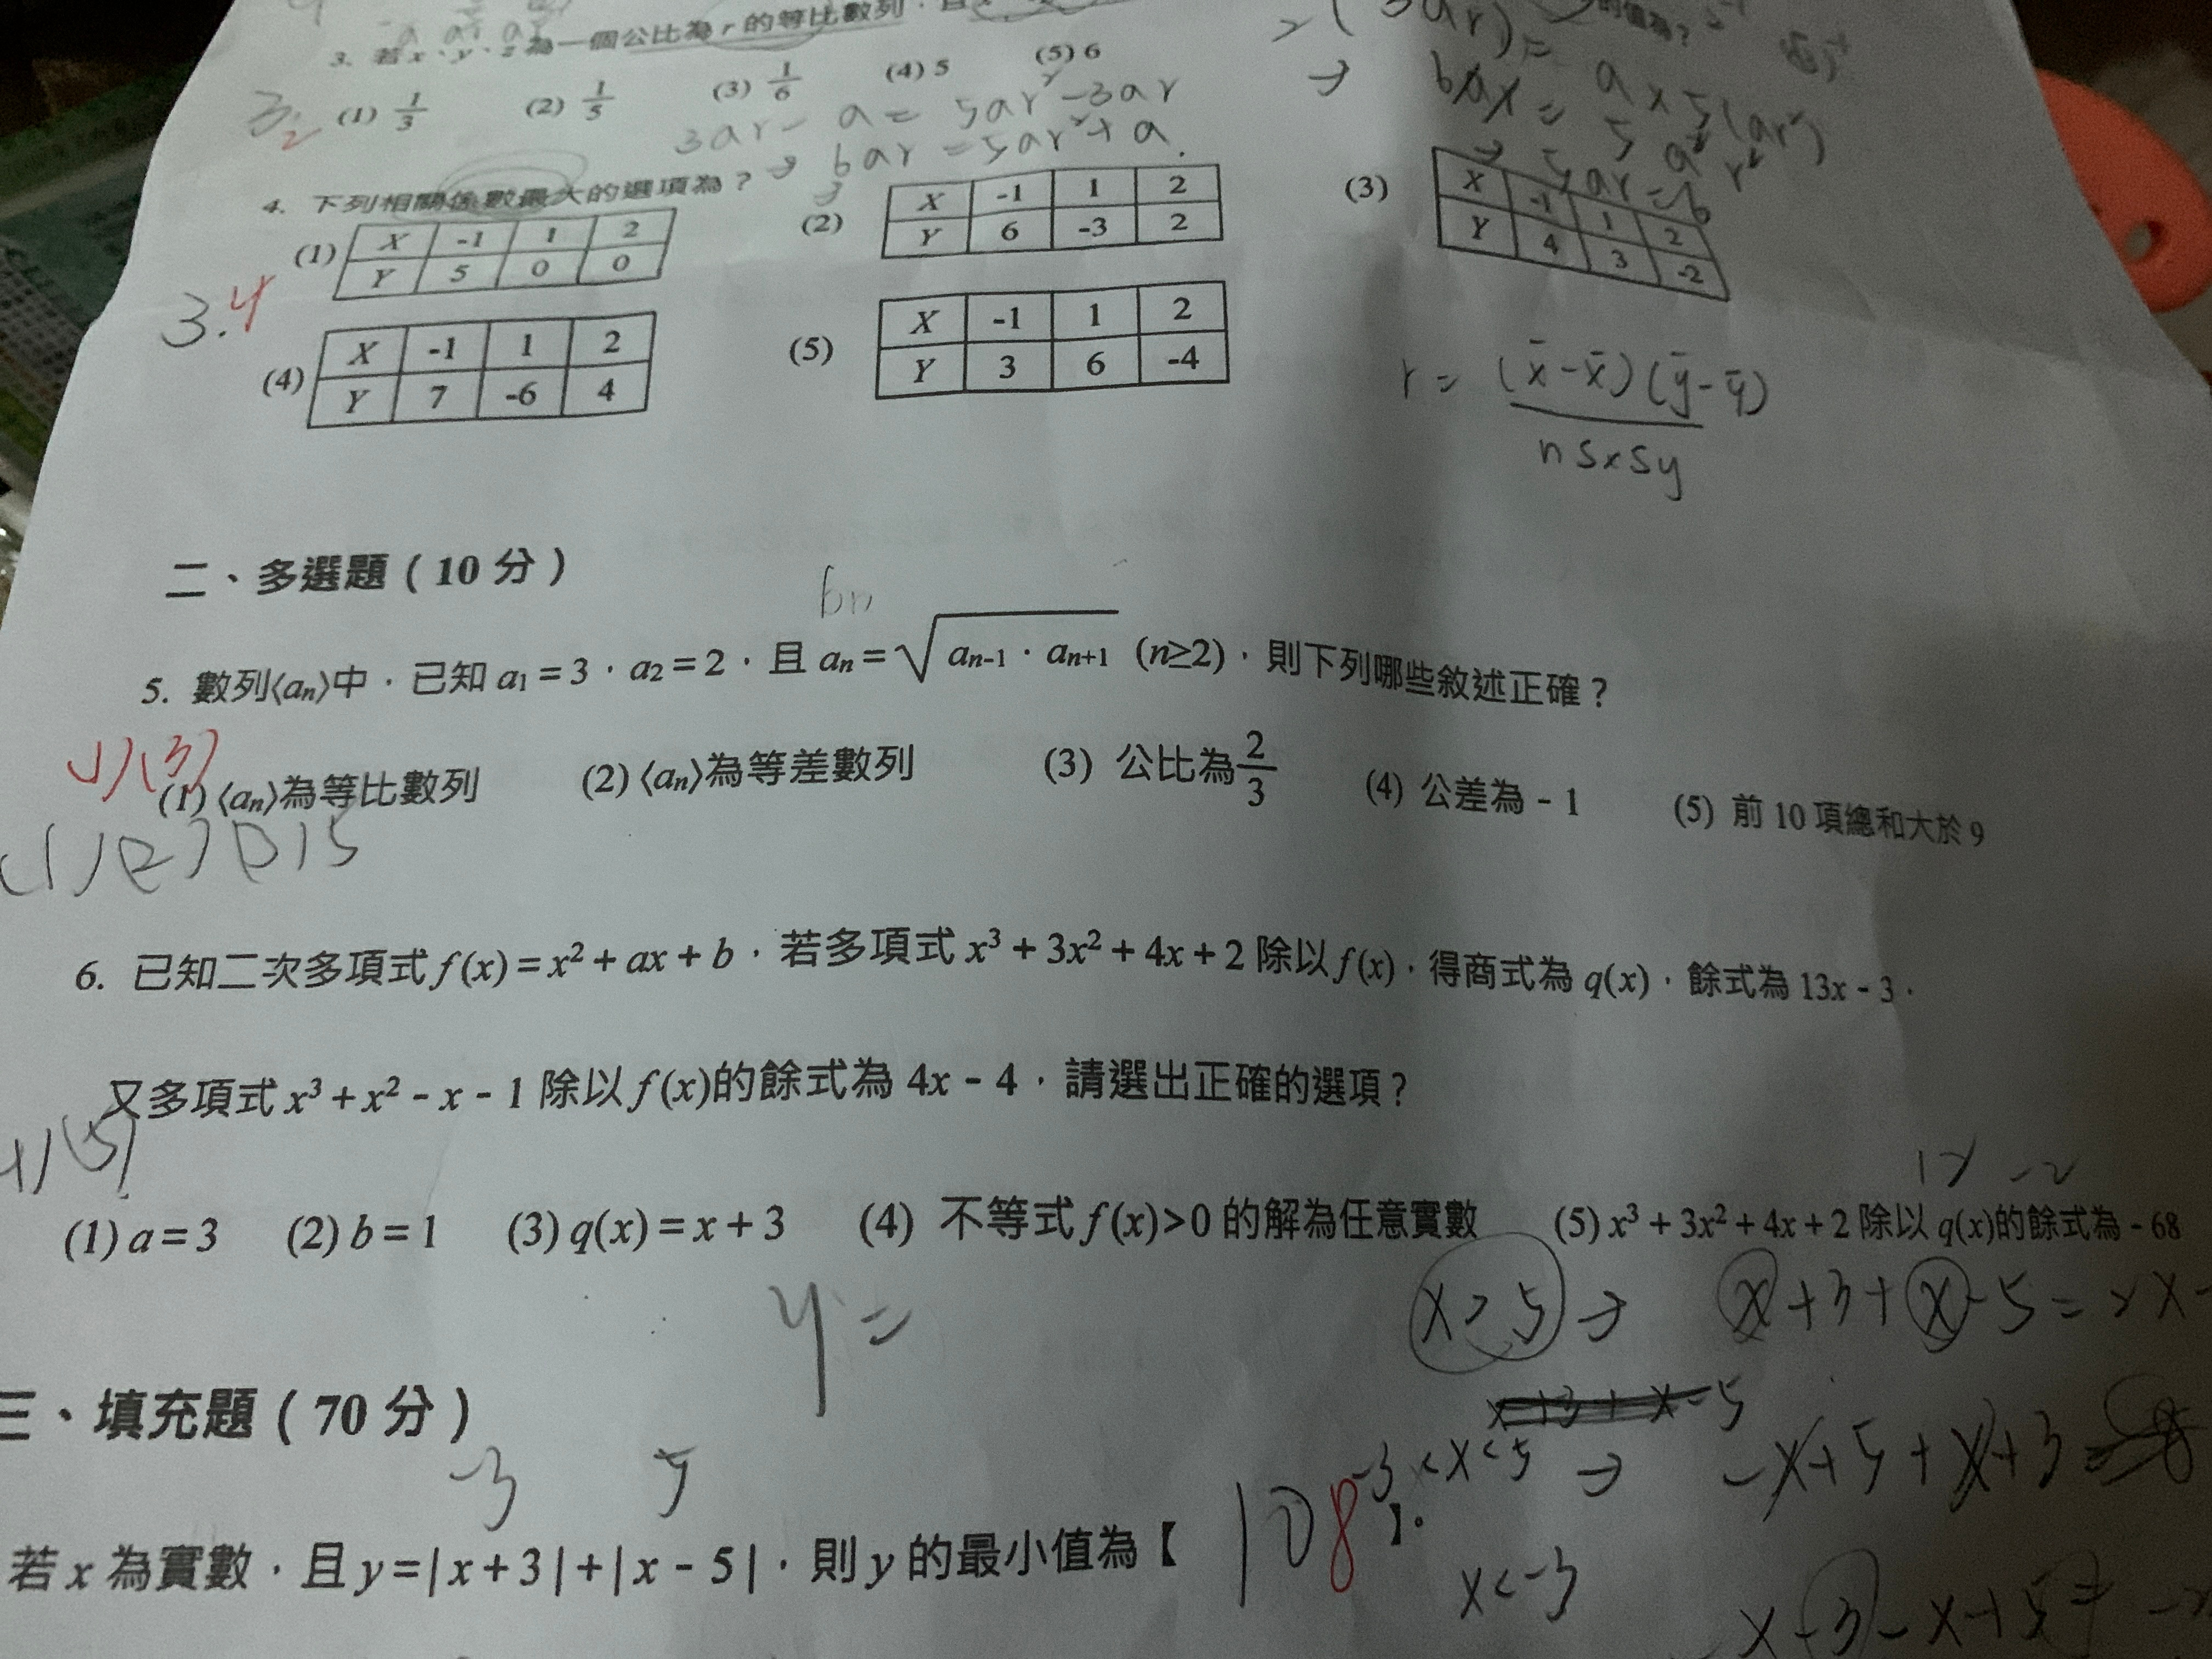 3. 若 x、y、z 為一個公比為 r 的等比數列，且
的值為？
(1) 1/3 (2) 1/5 (3) 1/6 (4) 5 (5) 6
3ar - a = 5ar² - 3ar
→ 6ar = 5ar² + a
4. 下列相關係數最大的選項為？
(1) X -1 1 2
Y 5 0 0
(2) X -1 1 2
Y 6 -3 2
(3) X -1 1 2
Y 4 3 -2
3. 4
(4) X -1 1 2
Y 7 -6 4
(5) X -1 1 2
Y 3 6 -4
r = (x̄-x̄)(ȳ-ȳ)
nSxSy
二、多選題（10 分）
bn
5. 數列⟨aₙ⟩中，已知 a₁ = 3，a₂ = 2，且 aₙ = √(aₙ₋₁ · aₙ₊₁) (n≥2)，則下列哪些敘述正確？
(1)(3)
(1) ⟨aₙ⟩為等比數列 (2) ⟨aₙ⟩為等差數列 (3) 公比為 2/3 (4) 公差為 - 1 (5) 前 10 項總和大於 9
6. 已知二次多項式 f(x) = x² + ax + b，若多項式 x³ + 3x² + 4x + 2 除以 f(x)，得商式為 q(x)，餘式為 13x - 3，
又多項式 x³ + x² - x - 1 除以 f(x)的餘式為 4x - 4，請選出正確的選項？
(1) a = 3 (2) b = 1 (3) q(x) = x + 3 (4) 不等式 f(x)>0 的解為任意實數 (5) x³ + 3x² + 4x + 2 除以 q(x)的餘式為 - 68
y =
x > 5 → x+3+x-5 = 2x-
三、填充題（70 分）
-3 5
-3 < x < 5 → -x+5+x+3 = 8
若 x 為實數，且 y = | x + 3 | + | x - 5 |，則 y 的最小值為【 10 8 】。
x < -3